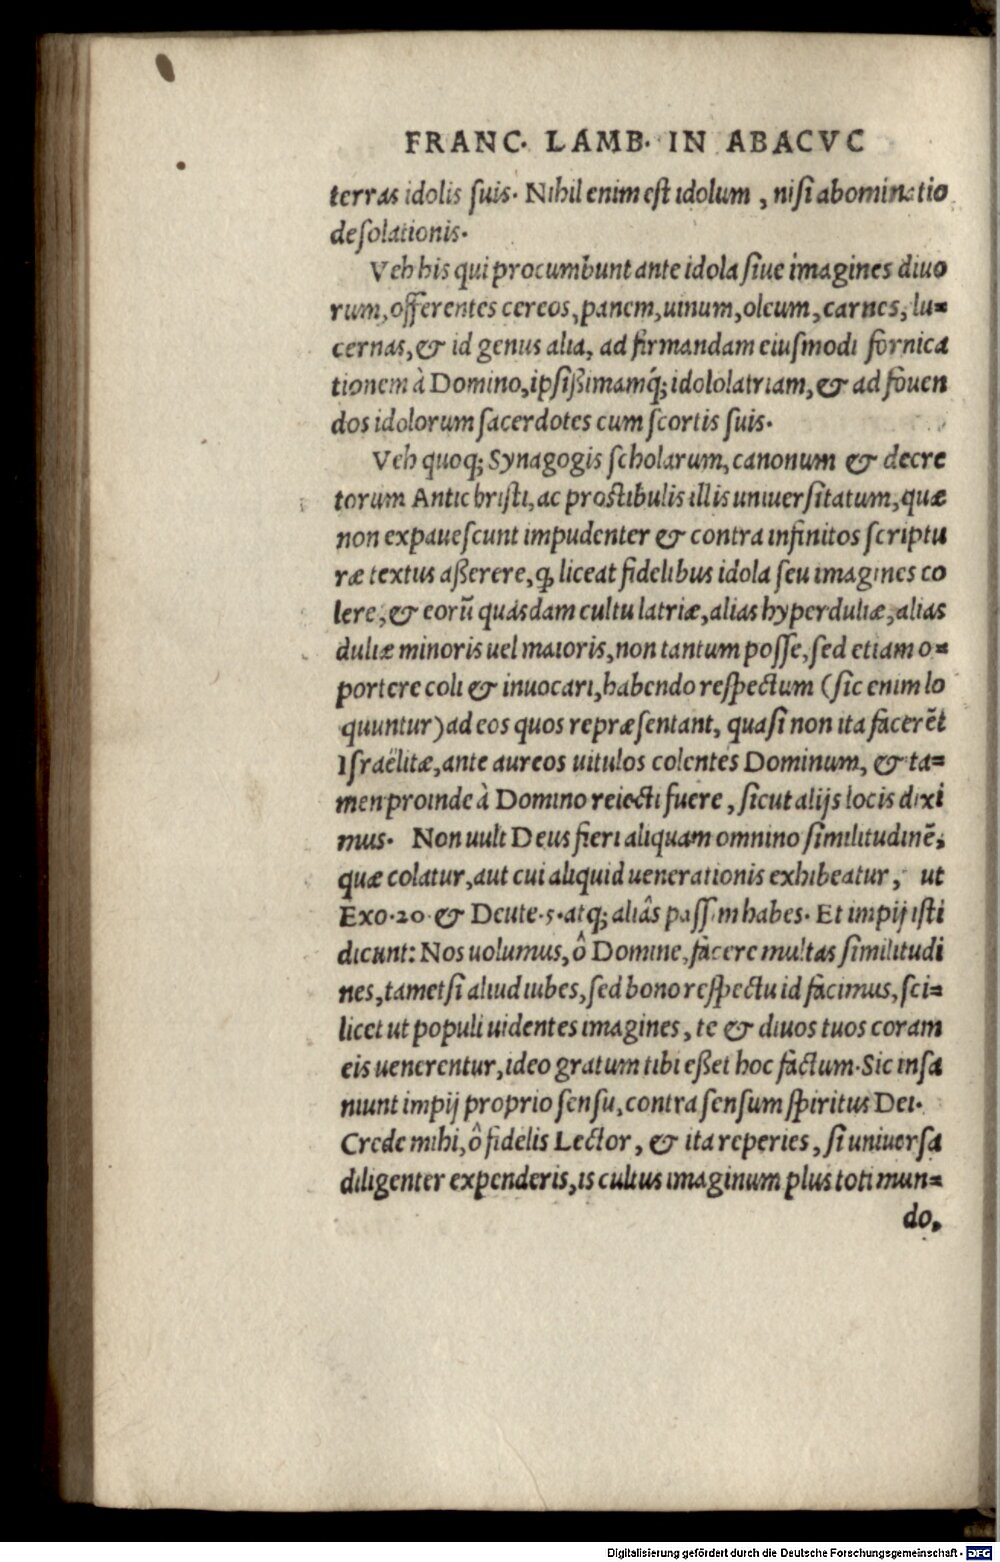 FRANC. LAMB. IN ABACVC
terras idolis suis. Nihil enim est idolum, nisi abominatio
desolationis.
Veh his qui procumbunt ante idola siue imagines diuo
rum, offerentes cereos, panem, uinum, oleum, carnes, lu=
cernas, & id genus alia, ad firmandam eiusmodi fornica
tionem à Domino, ipsißimamq́; idololatriam, & ad fouen
dos idolorum sacerdotes cum scortis suis.
Veh quoq; Synagogis scholarum, canonum & decre
torum Antichristi, ac prostibulis illis uniuersitatum, quæ
non expauescunt impudenter & contra infinitos scriptu
ræ textus aßerere, ꝙ liceat fidelibus idola seu imagines co
lere, & eorũ quasdam cultu latriæ, alias hyperduliæ, alias
duliæ minoris uel maioris, non tantum posse, sed etiam o=
portere coli & inuocari, habendo respectum (sic enim lo
quuntur) ad eos quos repræsentant, quasi non ita facerẽt
Israëlitæ, ante aureos uitulos colentes Dominum, & ta=
men proinde à Domino reiecti fuere, sicut alijs locis dixi
mus. Non uult Deus fieri aliquam omnino similitudinẽ,
quæ colatur, aut cui aliquid uenerationis exhibeatur, ut
Exo.20 & Deute.5.atq; aliâs passim habes. Et impij isti
dicunt: Nos uolumus, ô Domine, facere multas similitudi
nes, tametsi aliud iubes, sed bono respectu id facimus, sci=
licet ut populi uidentes imagines, te & diuos tuos coram
eis uenerentur, ideo gratum tibi eßet hoc factum. Sic insa
niunt impij proprio sensu, contra sensum spiritus Dei.
Crede mihi, ô fidelis Lector, & ita reperies, si uniuersa
diligenter expenderis, is cultus imaginum plus toti mun=
do,
Digitalisierung gefördert durch die Deutsche Forschungsgemeinschaft - DFG